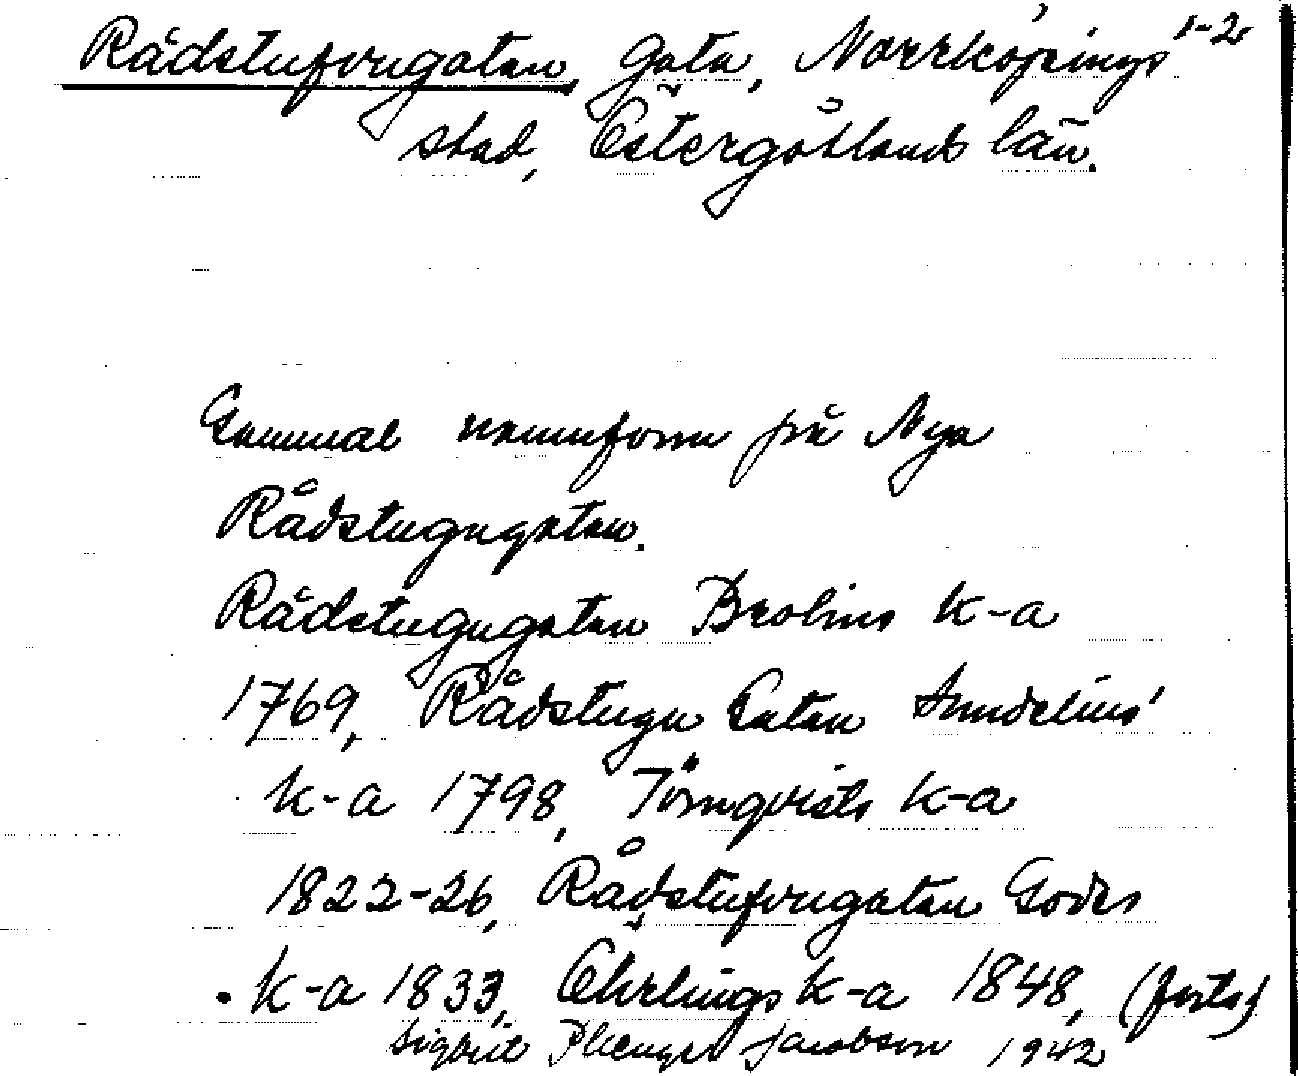 Rådstufvugatan, gata, Norrköpings 1-2
stad, Östergötlands län.
Gammal namnform på Nya
Rådstugugatan.
Rådstugugatan Brolins k-a
1769, Rådstugu Gatan Sundelius'
k-a 1798, Törnqvists k-a
1822-26, Rådstufvugatan Godes
k-a 1833, Öhrlings k-a 1848, (forts.)
Sigbrit Plænge Jacobson 1942